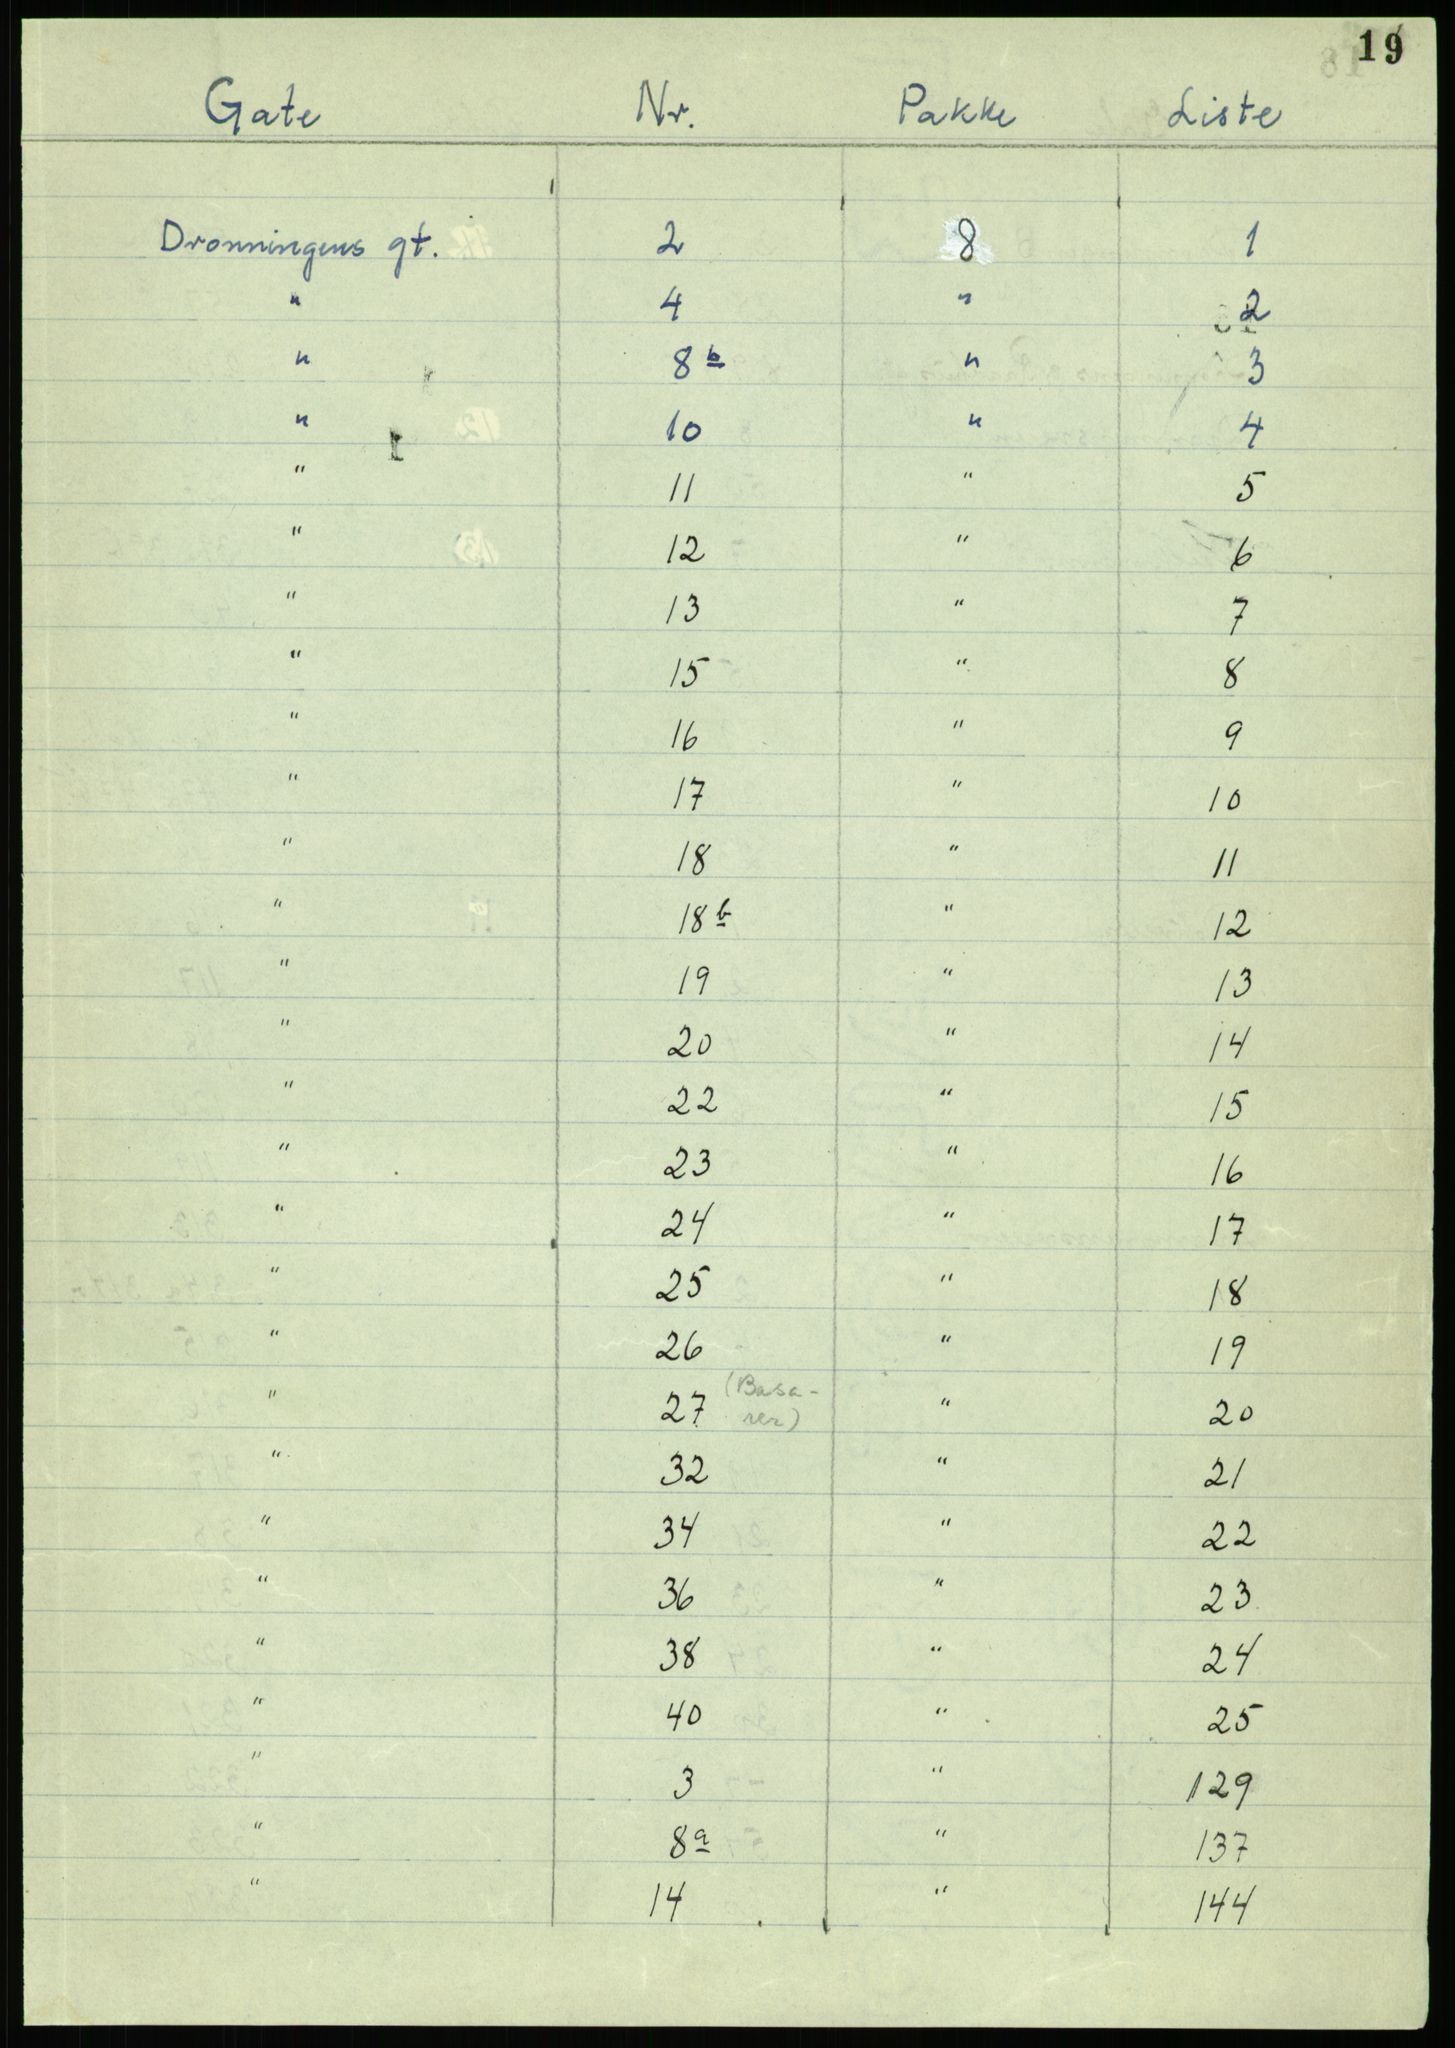 19
Gate Nr. Pakke Liste
Dronningens gt. 2 8 1
" 4 " 2
" 8b " 3
" 10 " 4
" 11 " 5
" 12 " 6
" 13 " 7
" 15 " 8
" 16 " 9
" 17 " 10
" 18 " 11
" 18b " 12
" 19 " 13
" 20 " 14
" 22 " 15
" 23 " 16
" 24 " 17
" 25 " 18
" 26 " 19
" 27 (Basa-rer) " 20
" 32 " 21
" 34 " 22
" 36 " 23
" 38 " 24
" 40 " 25
" 3 " 129
" 8a " 137
" 14 " 144